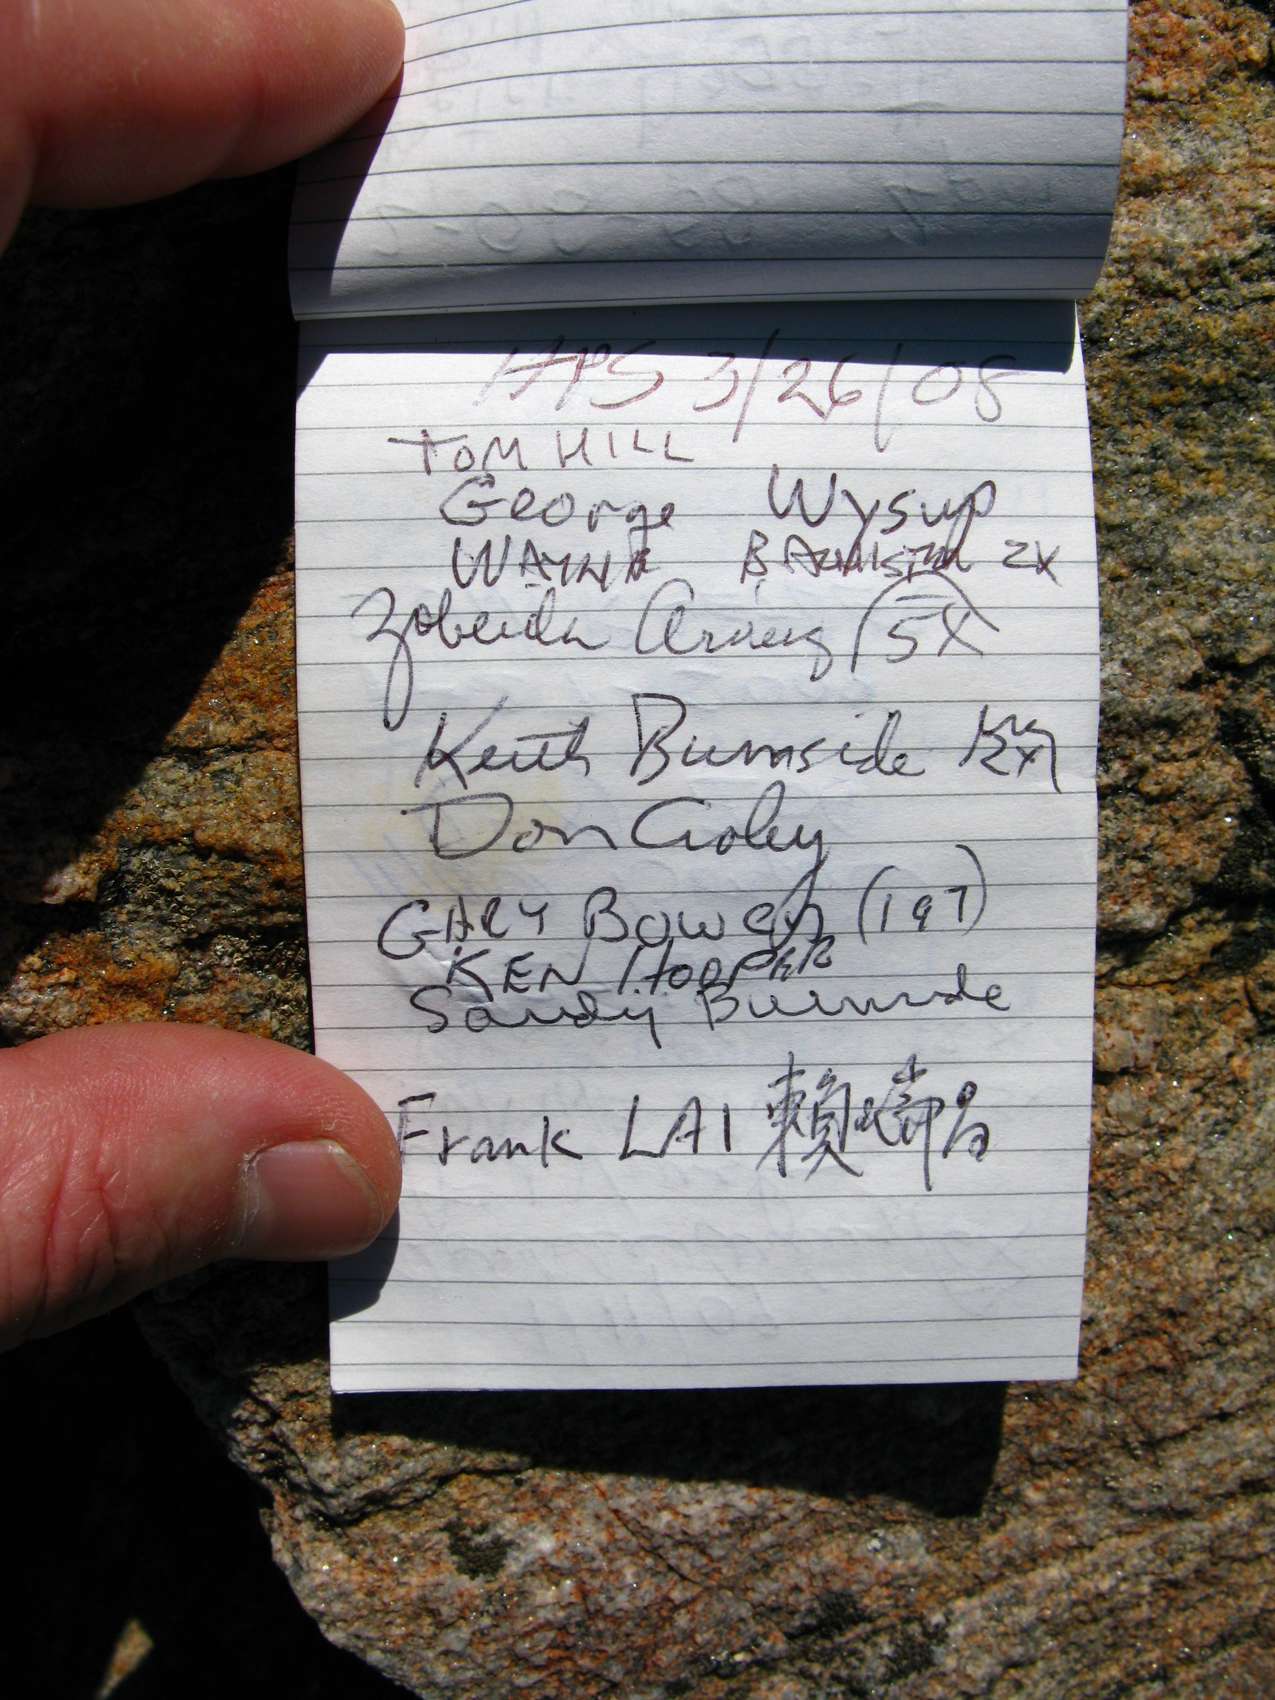 HPS 3/26/08
TOM HILL
George Wysup
WAYNE BANNISTER 2X
Zobeida Arvig 5X
Keith Burnside 2X
Don Croley
GARY Bowen (197)
KEN HOOPER
Sandy Burnside
Frank LAI 賴瑞昌